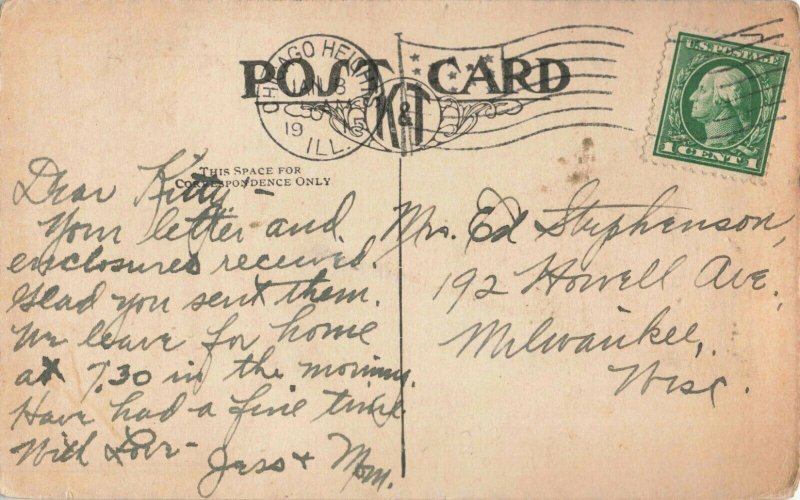 POST CARD
K&T
CHICAGO HEIGHTS
JAN 8
AM
19 15
ILL.
U.S. POSTAGE
1 CENT 1
THIS SPACE FOR
CORRESPONDENCE ONLY
Dear Kitty-
Your letter and
enclosures received.
Glad you sent them.
We leave for home
at 7.30 in the morning.
Have had a fine time.
With Love-
Jess + Mom.
Mrs. Ed Stephenson,
192 Howell Ave.,
Milwaukee,
Wisc.